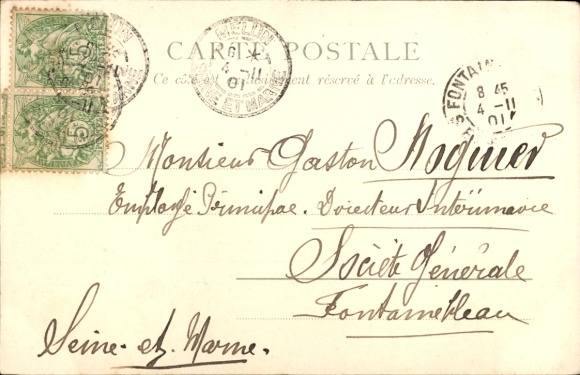 MELUN
4 -11
01
SEINE ET MARNE
CARTE POSTALE
Ce côté est exclusivement réservé à l'adresse.
FONTAIN
8 45
4 -11
01
Monsieur Gaston
Employé Principal. Directeur Intérimaire
Société Générale
Fontainebleau
Seine-et-Marne.